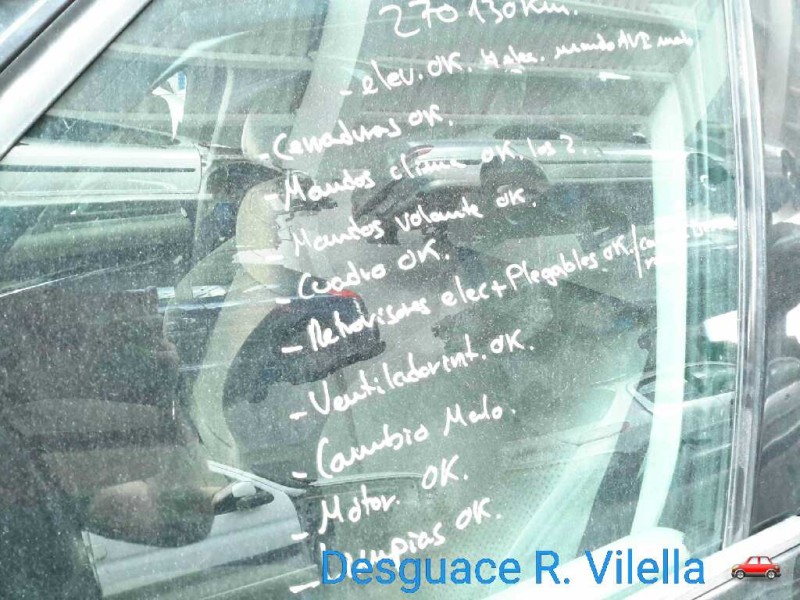 270130Km.
- elev. OK. 4 elec. mando AVI malo
- Cerraduras OK.
- Mandos clima OK. los 2..
- Mandos volante OK.
- Cuadro OK.
- Retrovisores elec + Plegables OK. /
- Ventilador int. OK.
- Cambio Malo.
- Motor. OK.
- Limpias OK.
Desguace R. Vilella